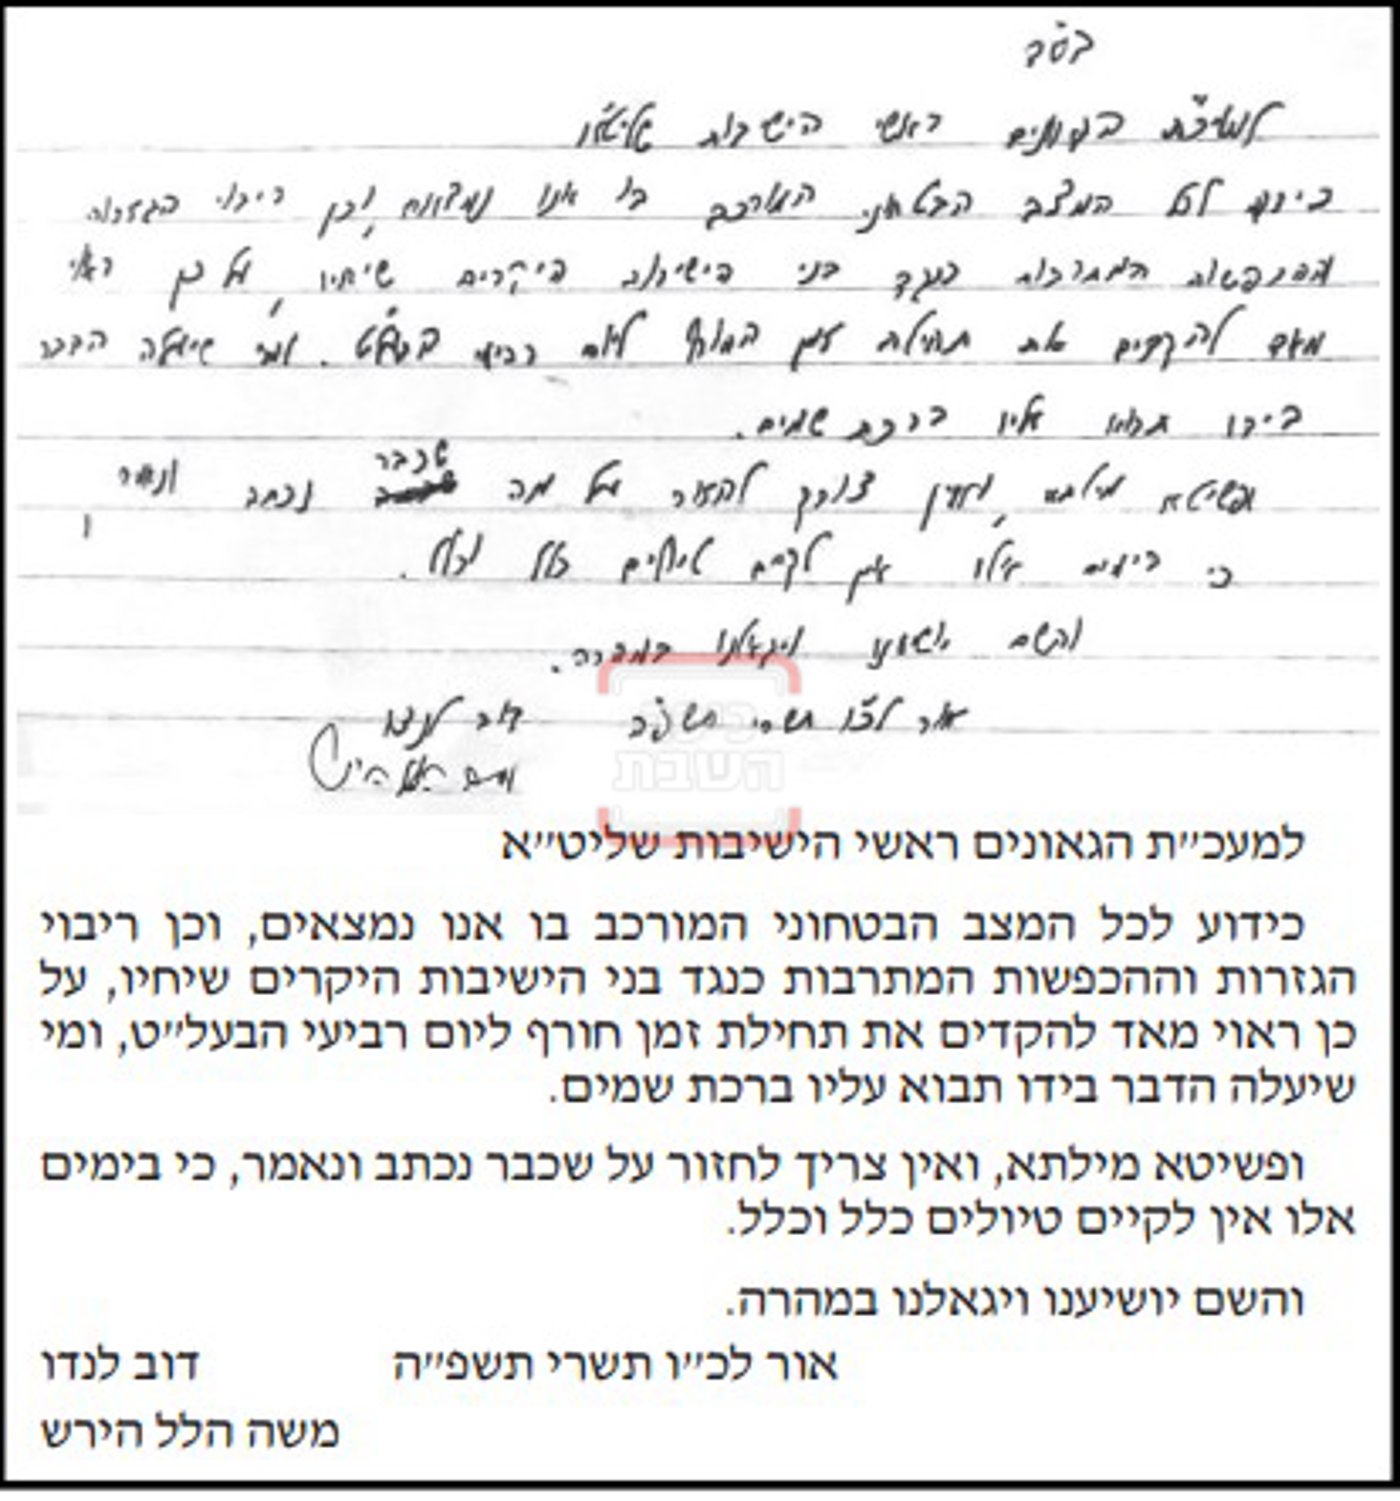 בס"ד
למעכ"ת הגאונים ראשי הישיבות שליט"א
כידוע לכל המצב הבטחוני המורכב בו אנו נמצאים, וכן ריבוי הגזרות
וההכפשות המתרבות כנגד בני הישיבות היקרים שיחיו, על כן ראוי
מאד להקדים את תחילת זמן החורף ליום רביעי הבעל"ט. ומי שיעלה הדבר
בידו תבוא עליו ברכת שמים.
ופשיטא מילתא, ואין צורך לחזור על מה שכבר נכתב ונאמר,
כי בימים אילו אין לקיים טיולים כלל וכלל.
והשם יושיענו ויגאלנו במהרה.
אור לכ"ו תשרי תשפ"ה דוב לנדו
משה הלל הירש
השבת
למעכ״ת הגאונים ראשי הישיבות שליט״א
כידוע לכל המצב הבטחוני המורכב בו אנו נמצאים, וכן ריבוי
הגזרות וההכפשות המתרבות כנגד בני הישיבות היקרים שיחיו, על
כן ראוי מאד להקדים את תחילת זמן חורף ליום רביעי הבעל״ט, ומי
שיעלה הדבר בידו תבוא עליו ברכת שמים.
ופשיטא מילתא, ואין צריך לחזור על שכבר נכתב ונאמר, כי בימים
אלו אין לקיים טיולים כלל וכלל.
והשם יושיענו ויגאלנו במהרה.
אור לכ״ו תשרי תשפ״ה דוב לנדו
משה הלל הירש